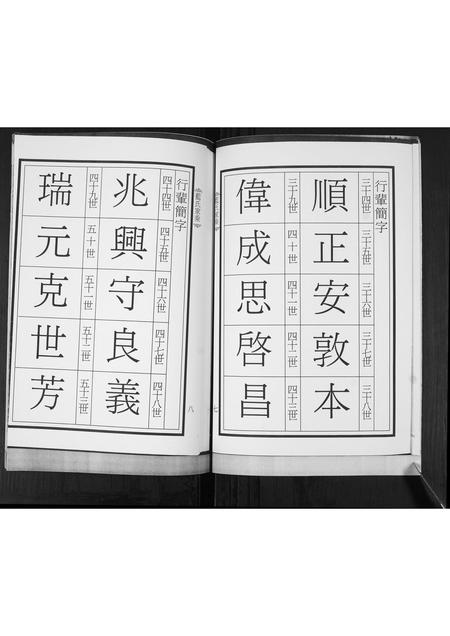 行輩簡字
三十四世 順
三十五世 正
三十六世 安
三十七世 敦
三十八世 本
三十九世 偉
四十世 成
四十一世 思
四十二世 啓
四十三世 昌
藍氏家乘
七
行輩簡字
四十四世 兆
四十五世 興
四十六世 守
四十七世 良
四十八世 義
四十九世 瑞
五十世 元
五十一世 克
五十二世 世
五十三世 芳
藍氏家乘
八